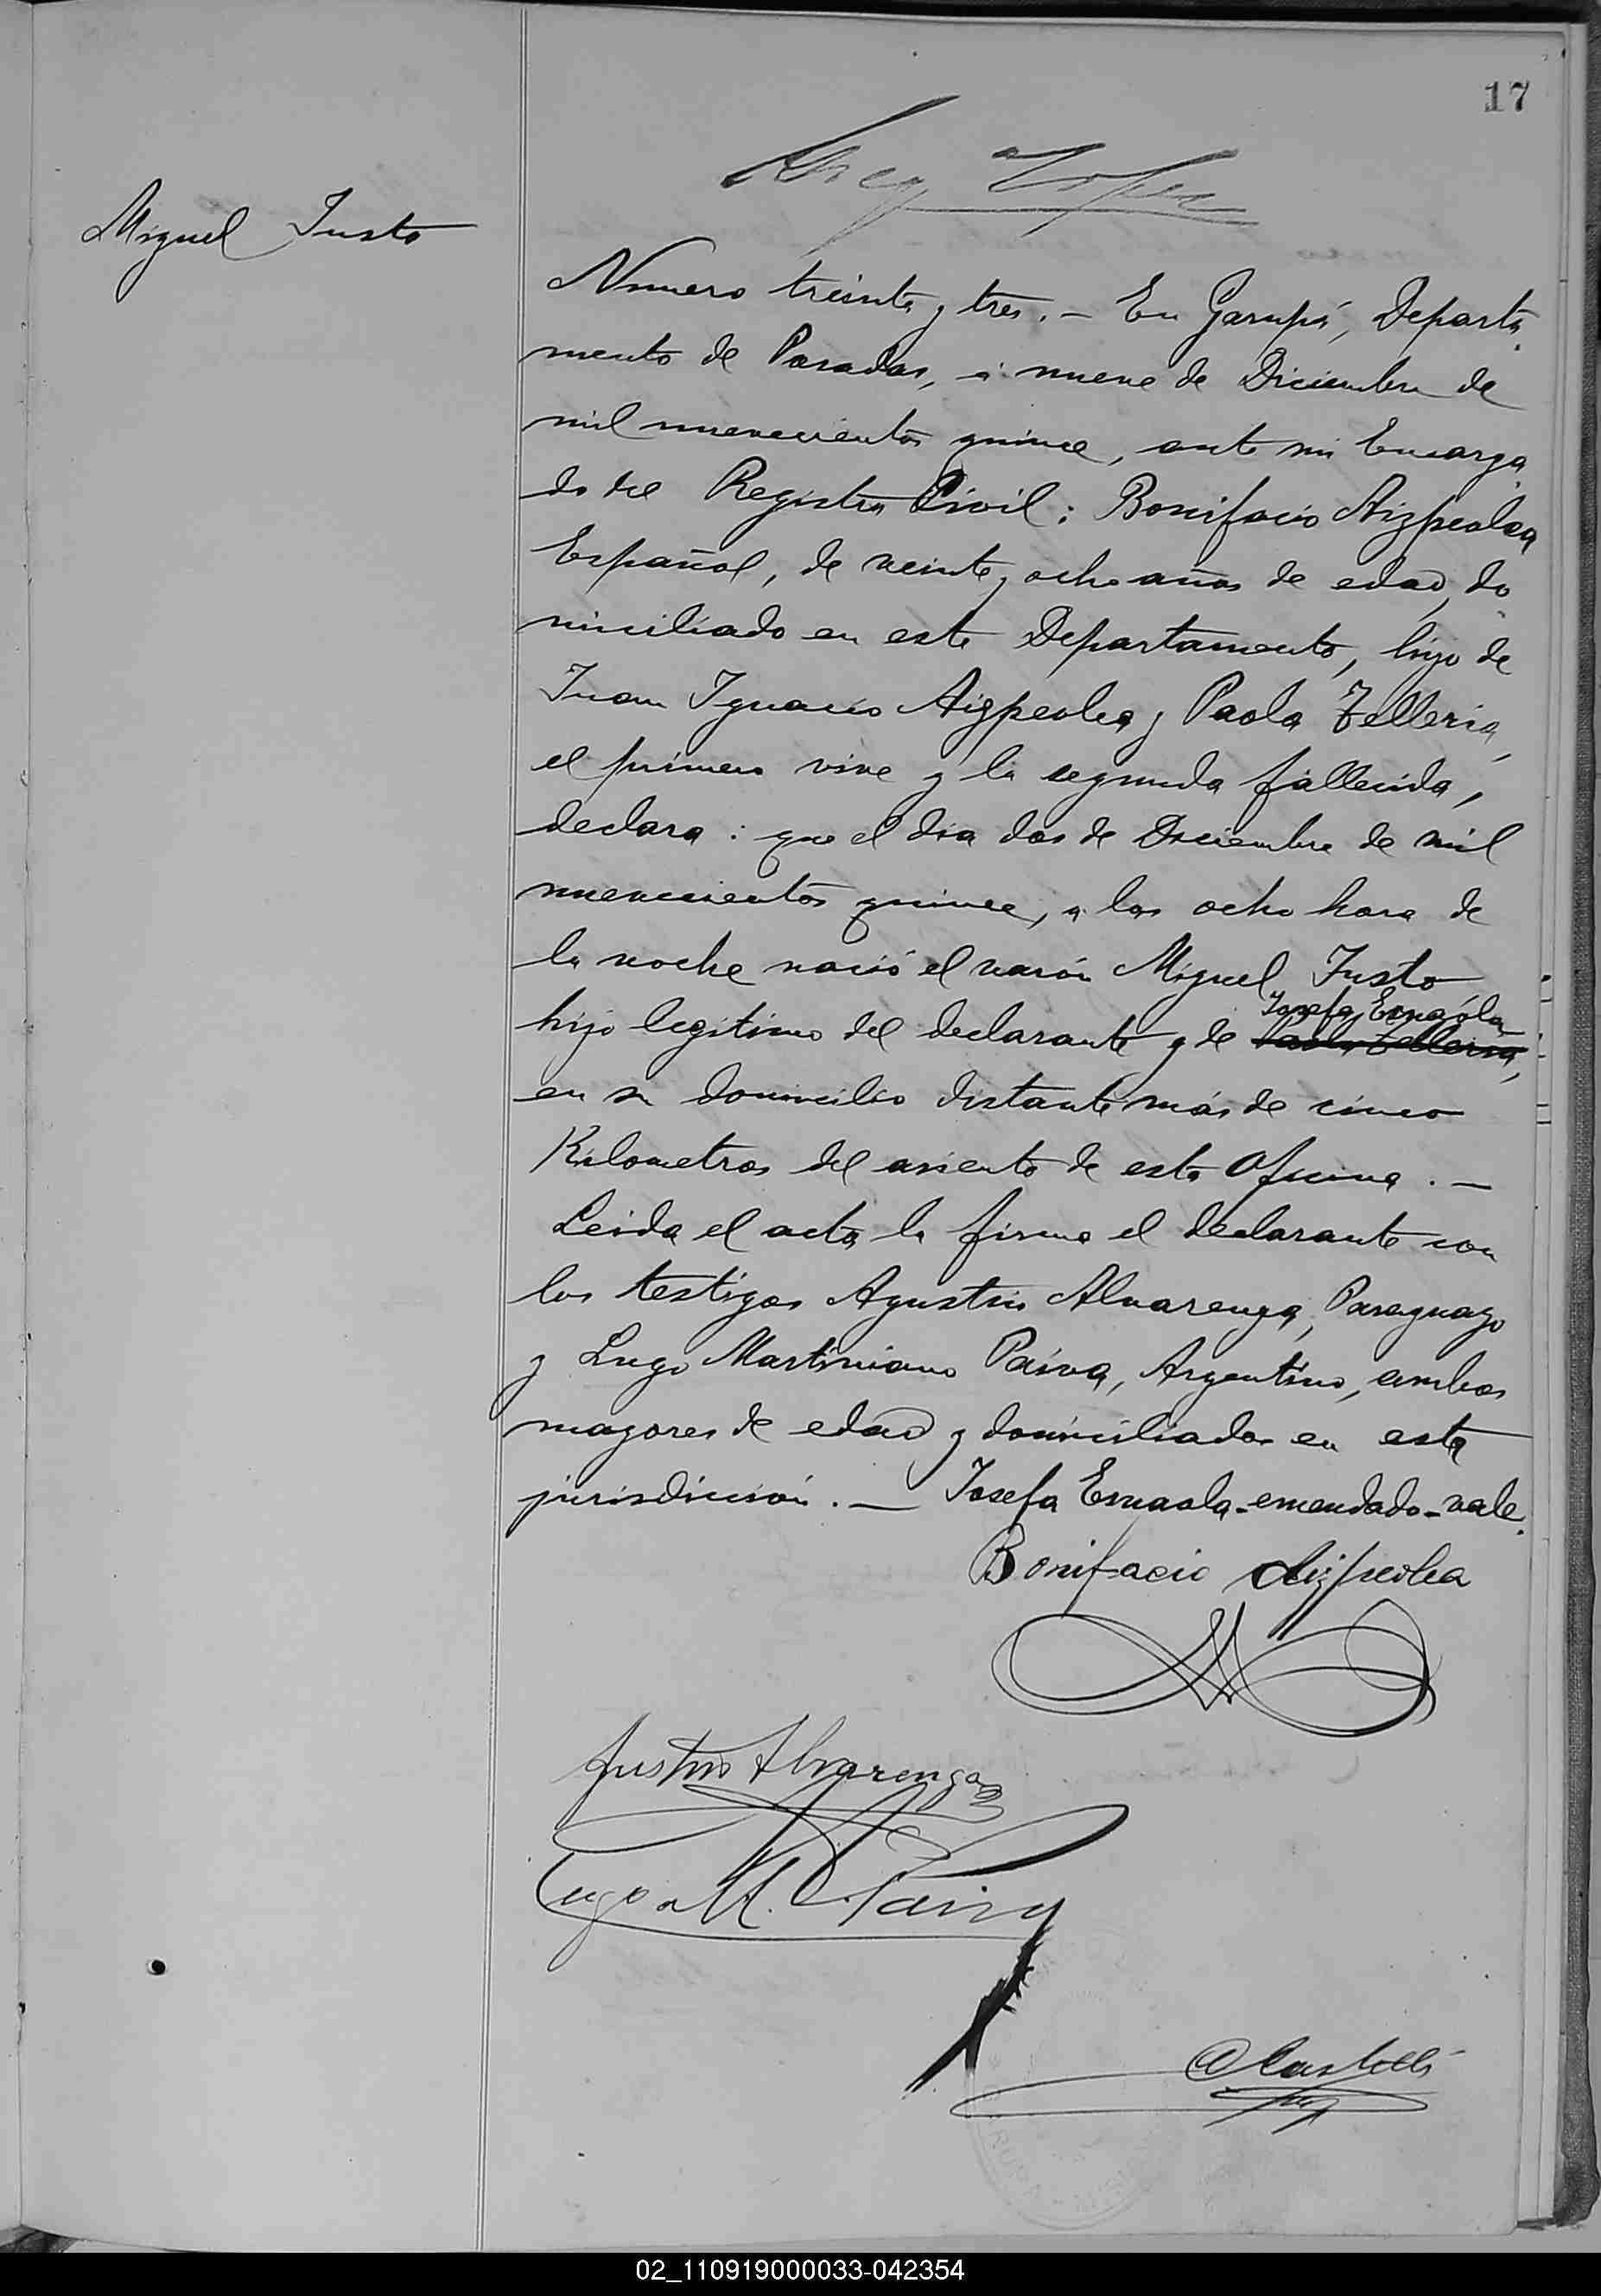 17
Lopez
Miguel Justo
Numero treinta y tres. — En Garupá, Departa
mento de Posadas, á nueve de Diciembre de
mil nuevecientos quince, ante mi Encarga
do del Registro Civil: Bonifacio Aizpeolea
Español, de veinte y ocho años de edad, do
miciliado en este Departamento, hijo de
Juan Ignacio Aizpeolea y Paola Telleria,
el primero vive y la segunda fallecida,
declara: que el dia dos de Diciembre de mil
nuevecientos quince, a las ocho hora de
la noche nació el varón Miguel Justo
Josefa Ernaóla
hijo legitimo del declarante y de Paola Telleria,
en su domicilio distante más de cinco
Kilometros del asiento de esta Oficina. —
Leida el acta la firma el declarante con
los testigos Agustin Alvarenga, Paraguayo
y Lugo Martiniano Paiva, Argentino, ambos
mayores de edad y domiciliados en esta
jurisdicción. — Josefa Ernaola - emendado - vale.
Bonifacio Aizpeolea
Agustin Alvarenga
Lugo M. Paiva
Castelli
02_110919000033-042354